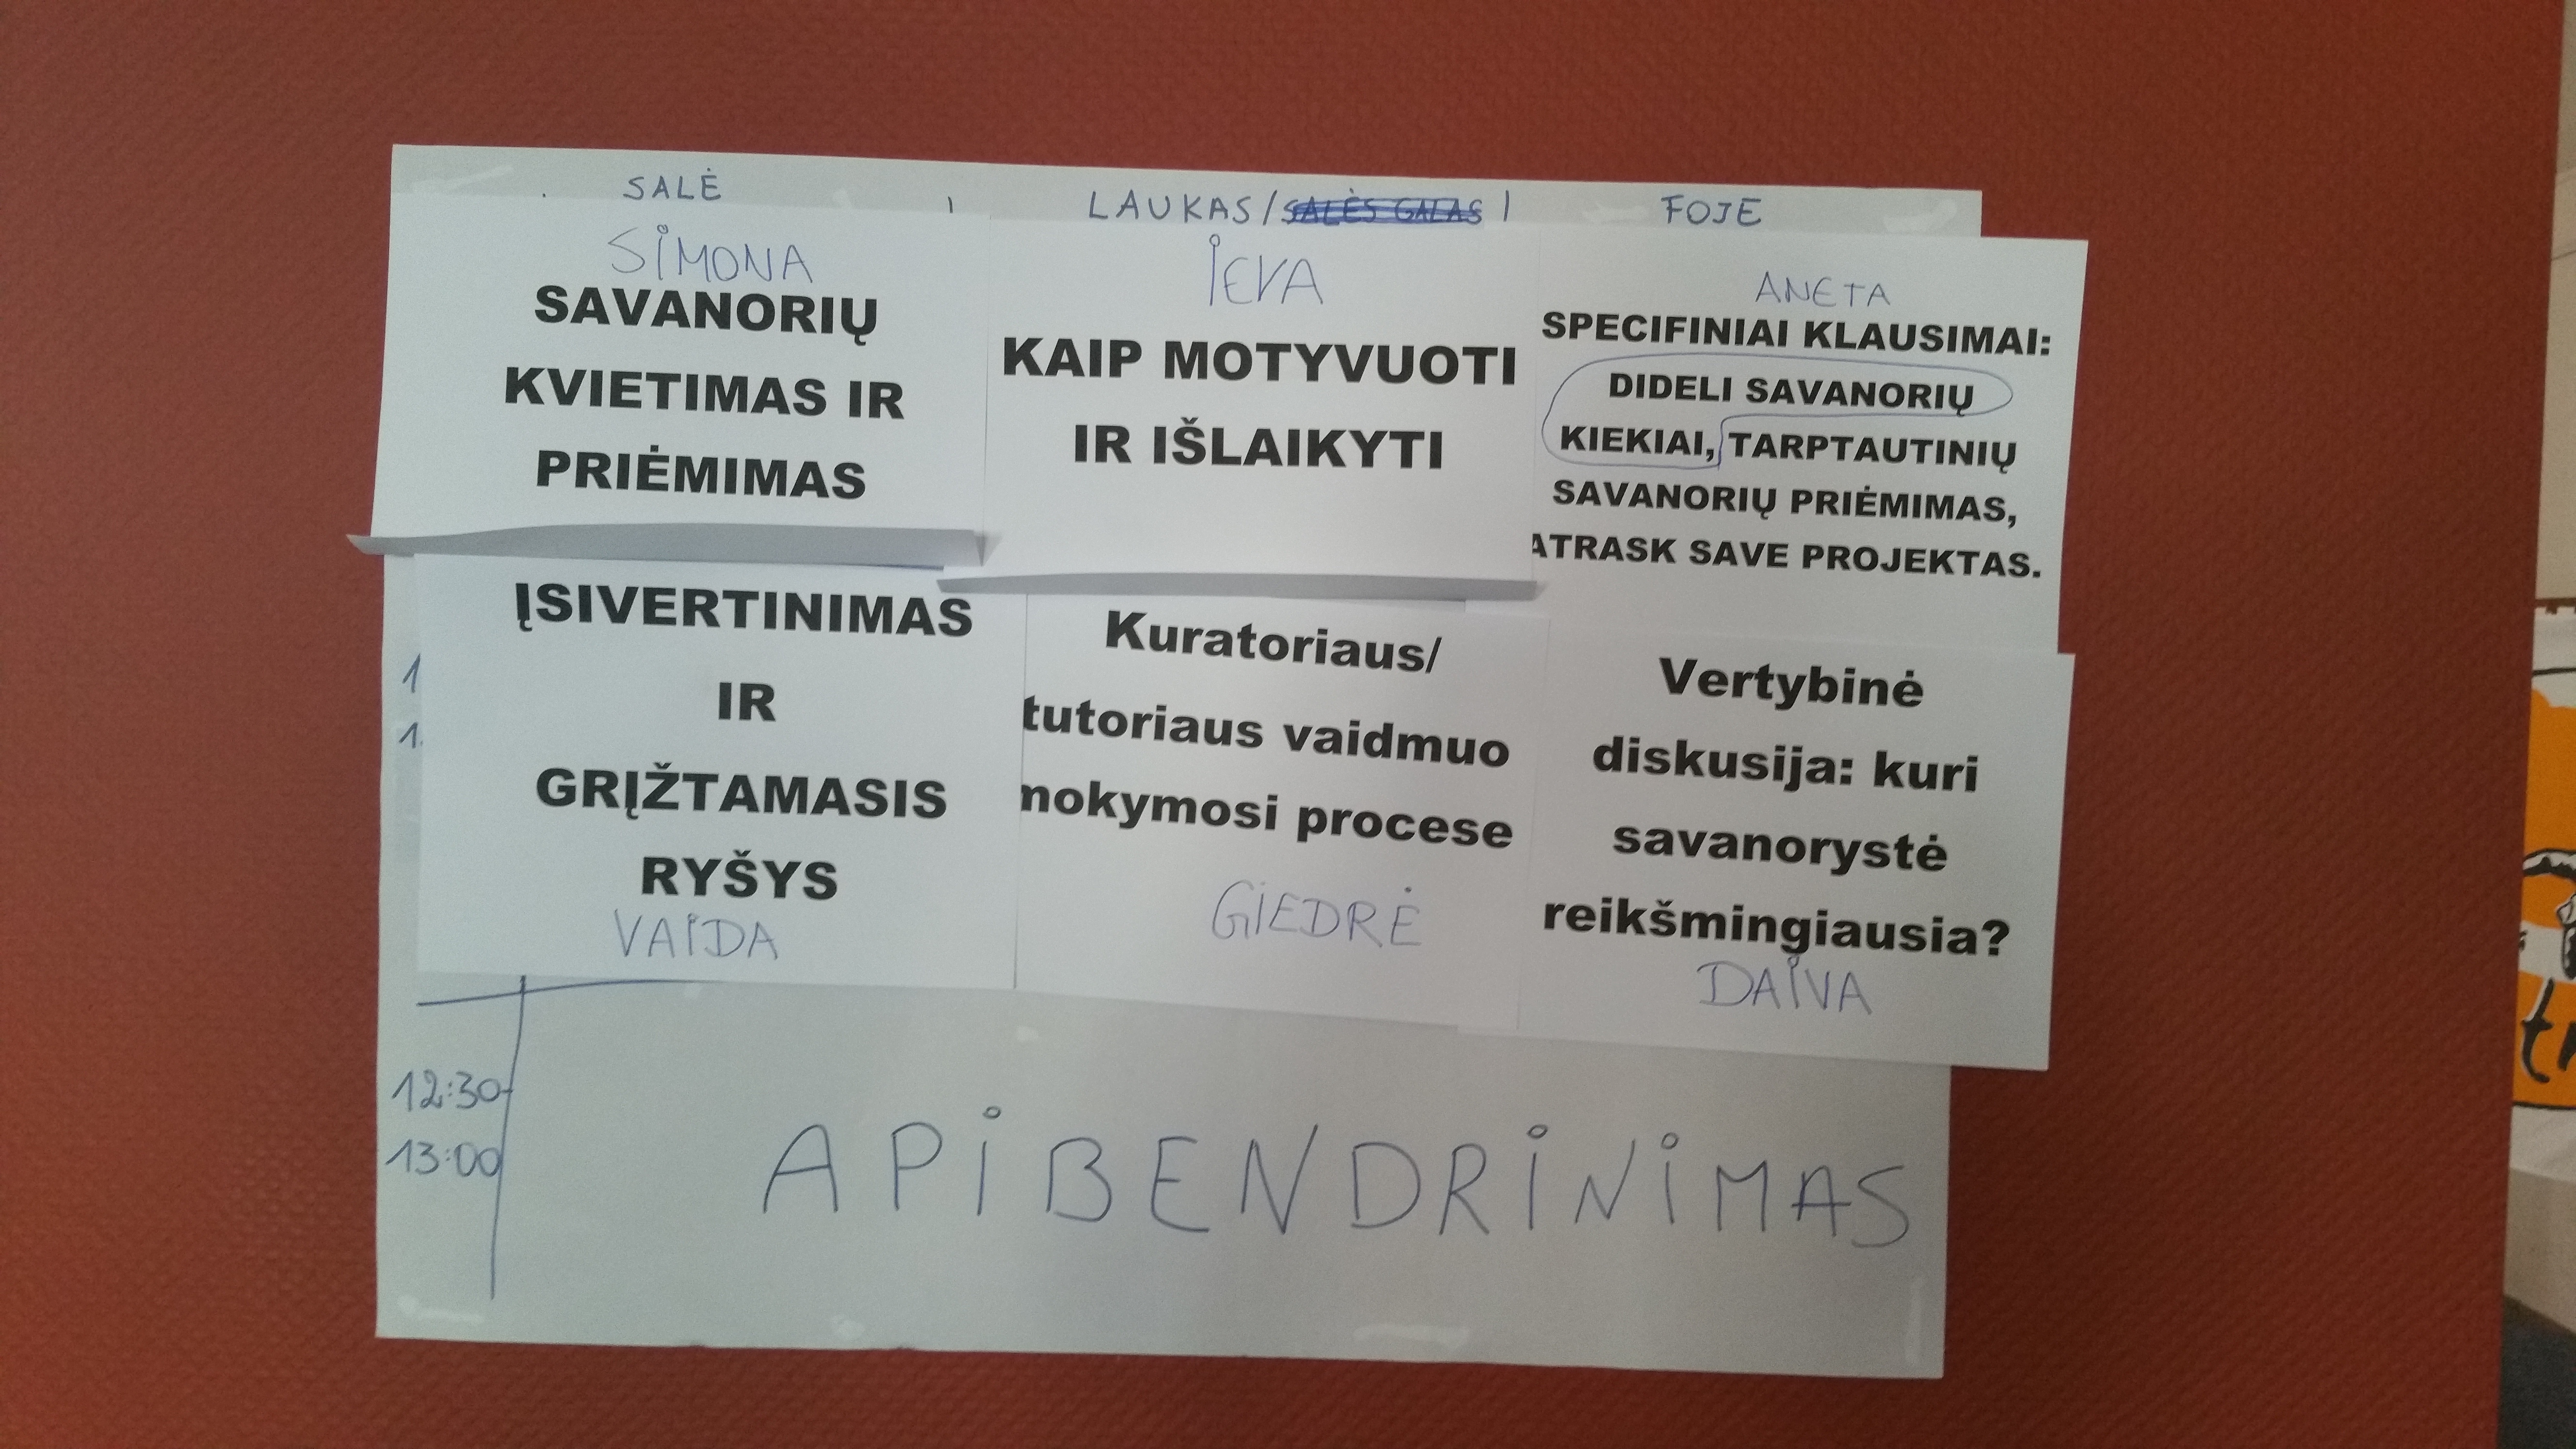 SALĖ
LAUKAS/SALĖS GALAS
FOJE
SIMONA
SAVANORIŲ
KVIETIMAS IR
PRIĖMIMAS
IEVA
KAIP MOTYVUOTI
IR IŠLAIKYTI
ANETA
SPECIFINIAI KLAUSIMAI:
DIDELI SAVANORIŲ
KIEKIAI, TARPTAUTINIŲ
SAVANORIŲ PRIĖMIMAS,
ATRASK SAVE PROJEKTAS.
ĮSIVERTINIMAS
IR
GRĮŽTAMASIS
RYŠYS
VAIDA
Kuratoriaus/
tutoriaus vaidmuo
mokymosi procese
GIEDRĖ
Vertybinė
diskusija: kuri
savanorystė
reikšmingiausia?
DAIVA
12:30-
13:00
APIBENDRINIMAS